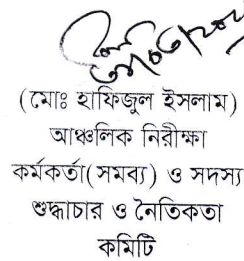 (মোঃ হাফিজুল ইসলাম)
আঞ্চলিক নিরীক্ষা
কর্মকর্তা(সমব্য) ও সদস্য
শুদ্ধাচার ও নৈতিকতা
কমিটি